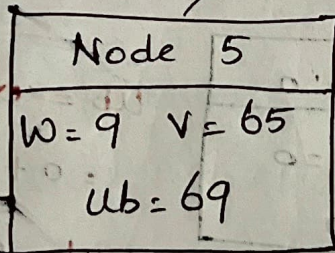 Node 5
W = 9 V = 65
Ub = 69